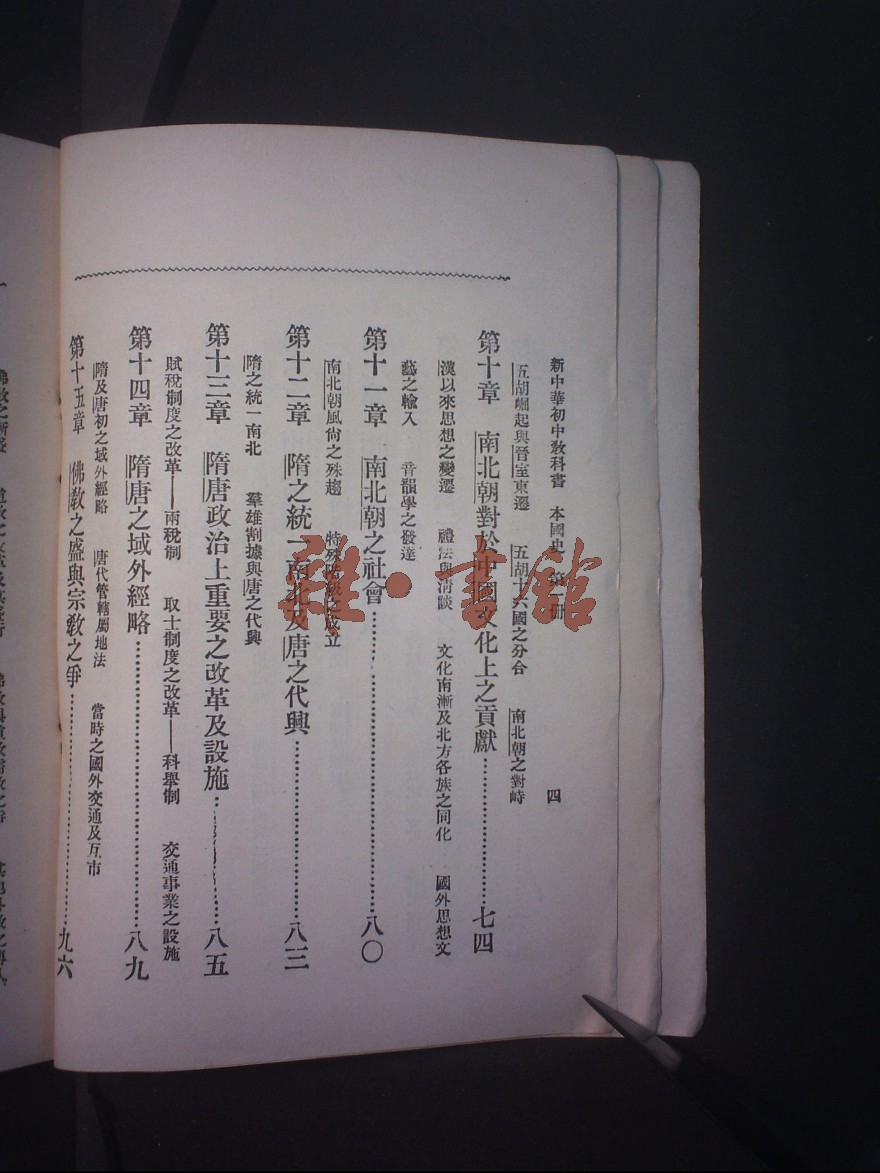 新中華初中教科書　本國史　第一冊　四
五胡崛起與晉室東遷　五胡十六國之分合　南北朝之對峙
第十章　南北朝對於中國文化上之貢獻…………七四
漢以來思想之變遷　禮法與清談　文化南漸及北方各族之同化　國外思想文
藝之輸入　音韻學之發達
第十一章　南北朝之社會…………八〇
南北朝風尚之殊趨　特殊階級之成立
第十二章　隋之統一南北及唐之代興…………八三
隋之統一南北　羣雄割據與唐之代興
第十三章　隋唐政治上重要之改革及設施…………八五
賦稅制度之改革——兩稅制　取士制度之改革——科舉制　交通事業之設施
第十四章　隋唐之域外經略…………八九
隋及唐初之域外經略　唐代管轄屬地法　當時之國外交通及互市
第十五章　佛教之盛與宗教之爭…………九六
雜·書館